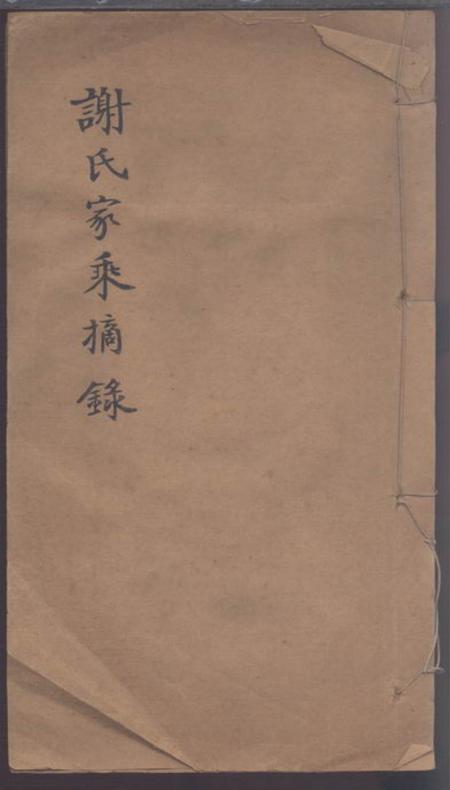 謝氏家乘摘錄